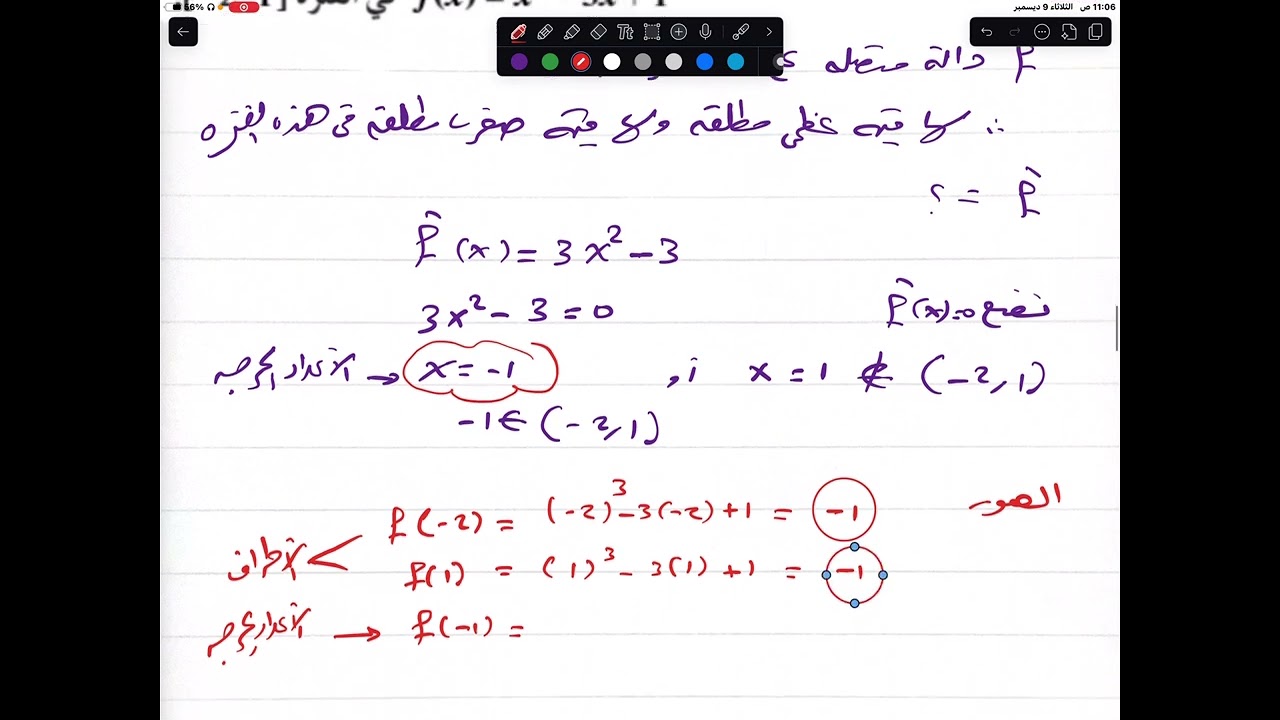 11:06 ص الثلاثاء 9 ديسمبر
56%
f دالة متصلة
∴ لها قيمة عظمى مطلقة ولها قيمة صغرى مطلقة في هذه الفترة
f̂ = ؟
f̂(x) = 3x² - 3
نضع f̂(x)=0
3x² - 3 = 0
الأعداد الحرجة → x = -1 , i x = 1 ∉ (-2, 1)
-1 ∈ (-2, 1)
الصور
f(-2) = (-2)³ - 3(-2) + 1 = -1
الأطراف
f(1) = (1)³ - 3(1) + 1 = -1
الأعداد الحرجة → f(-1) =